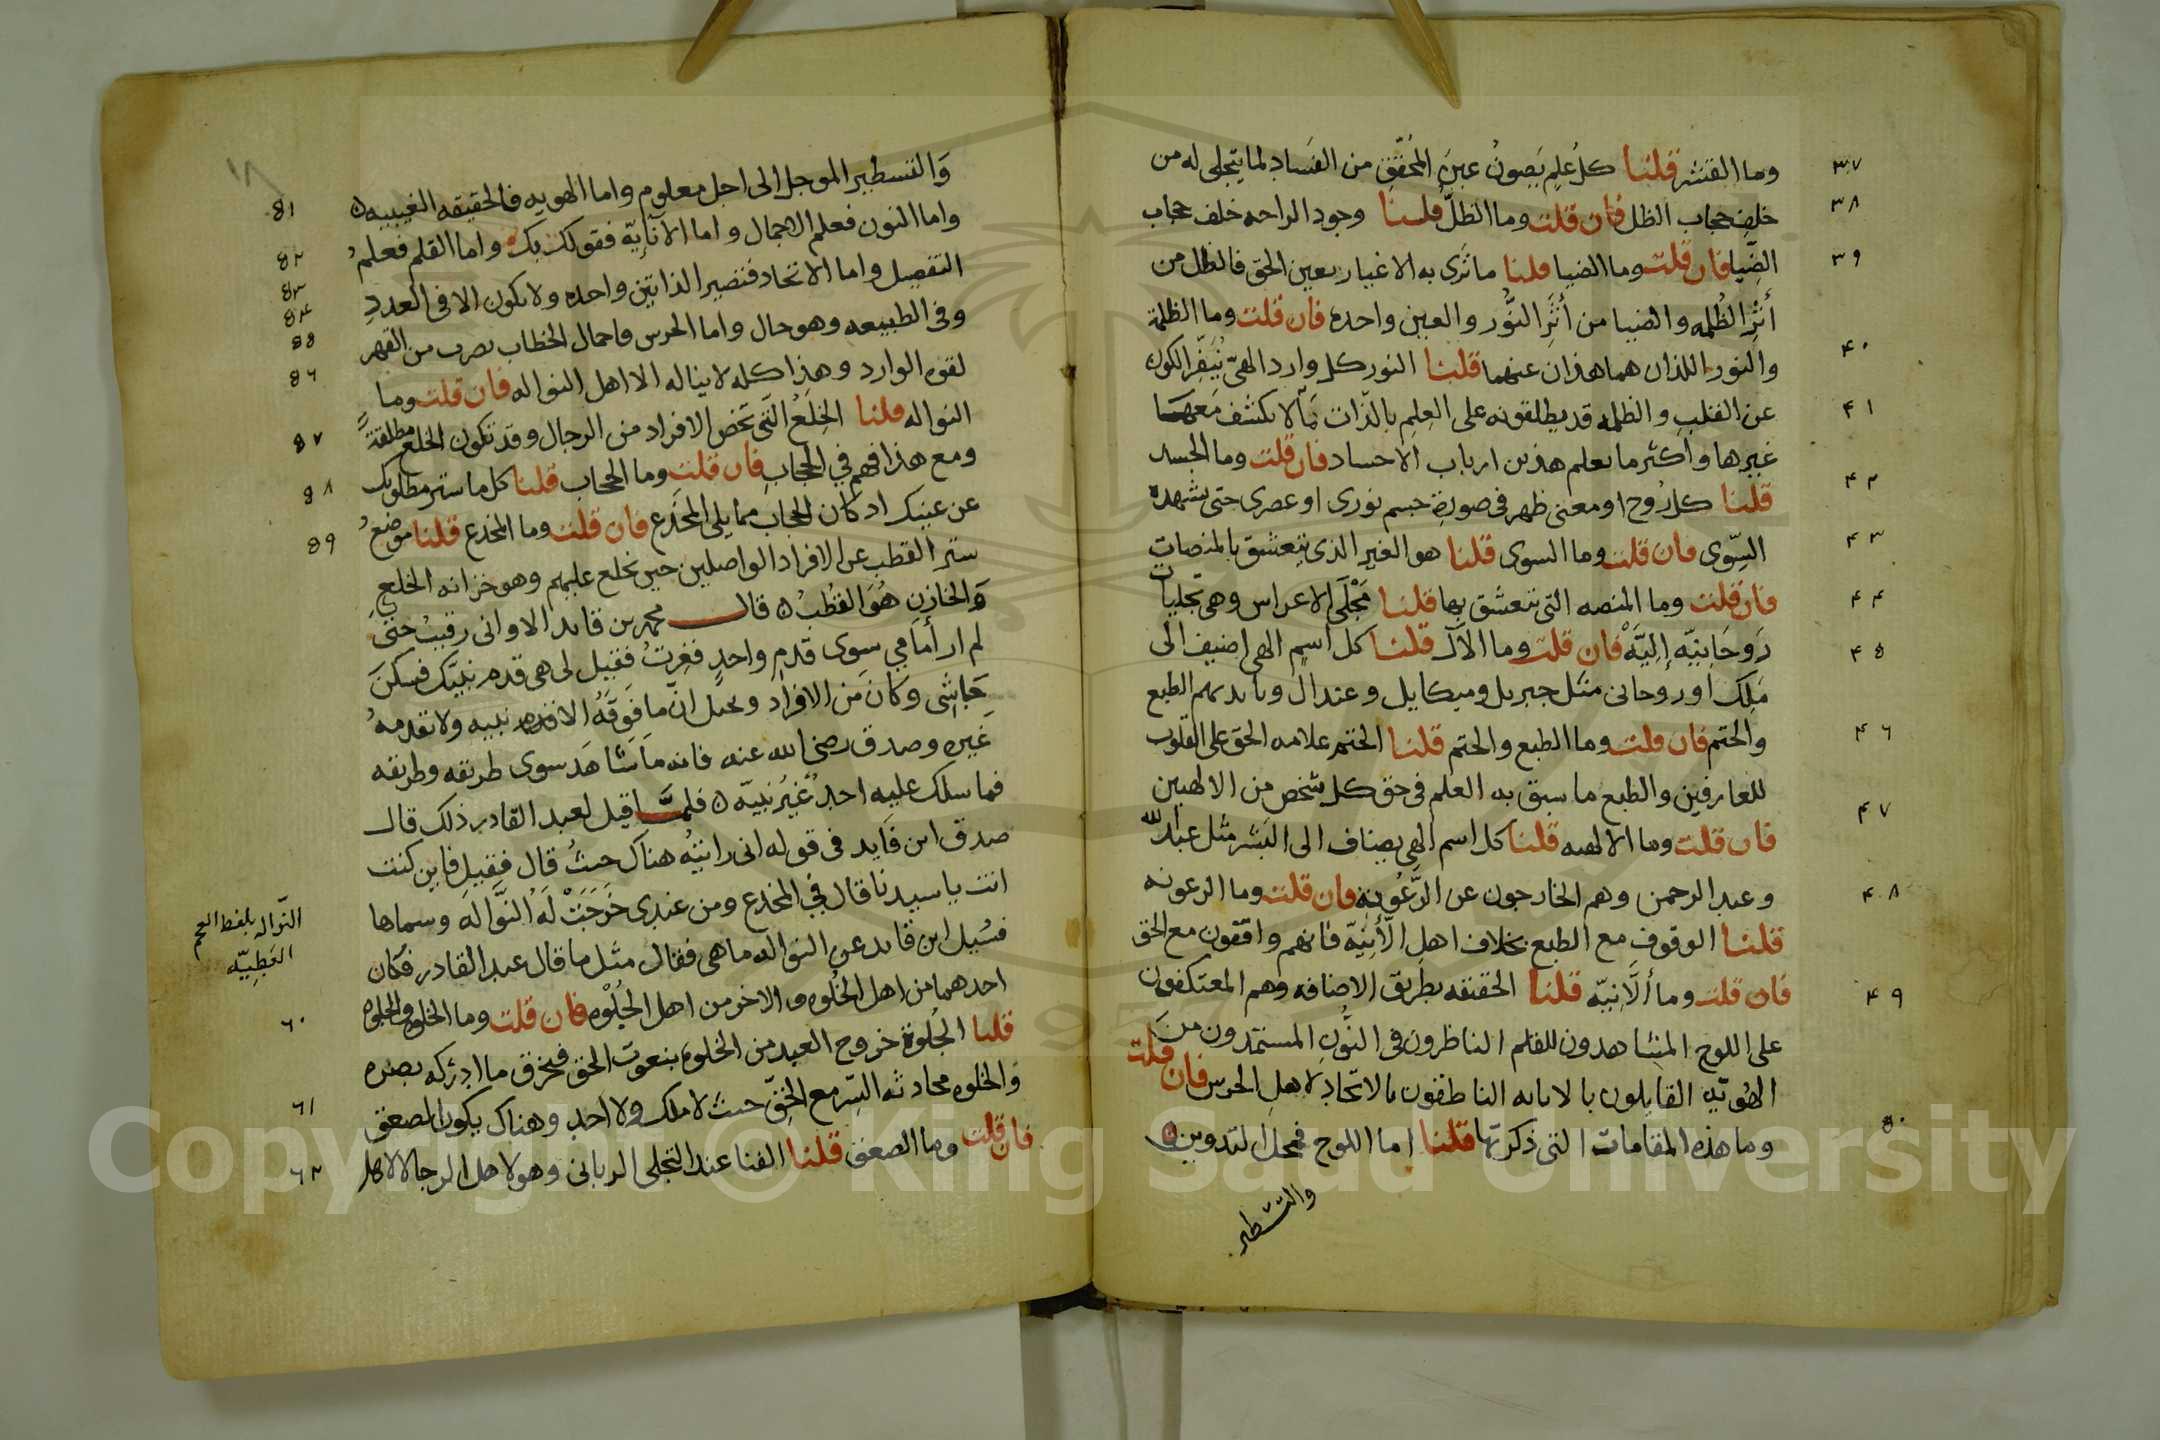 ٣٧
وما القشر قلنا كل علم يصون عين المحقق من الفساد لما يتجلى له من
٣٨
خلف حجاب الظل فان قلت وما الظل قلنا وجود الراحه خلف حجاب
٣٩
الضيا فان قلت وما الضيا قلنا ما ترى به الاغيار بعين الحق فالظل من
أثر الظلمه والضيا من أثر النور والعين واحده فان قلت وما الظلمة
٤٠
والنور اللذان هما هذان عنهما قلنا النور كل وارد الهي ينفر الكون
٤١
عن القلب والظلمه قد يطلقونه على العلم بالذات فانها لا تكشف معها
غيرها وأكثر ما يعلم هذين ارباب الاجساد فان قلت وما الجسد
٤٢
قلنا كل روح او معنى ظهر في صورة جسم نوري او عنصري حتى يشهده
٤٣
السوى فان قلت وما السوى قلنا هو الغير الذي يتعشق بالمنصات
٤٤
فان قلت وما المنصه التي تتعشق بها قلنا مجلى الاعراس وهي تجليات
٤٥
روحانيه إليه فان قلت وما الال قلنا كل اسم الهي اضيف الى
ملك او روحاني مثل جبريل وميكايل وعبدال وبايديهم الطبع
٤٦
والختم فان قلت وما الطبع والختم قلنا الختم علامه الحق على القلوب
للعارفين والطبع ما سبق به العلم في حق كل شخص من الالهيين
٤٧
فان قلت وما الالهيه قلنا كل اسم الهي يضاف الى البشر مثل عبدالله
٤٨
وعبد الرحمن وهم الخارجون عن الرعونه فان قلت وما الرعونه
قلنا الوقوف مع الطبع بخلاف اهل الأنية فانهم واقفون مع الحق
٤٩
فان قلت وما ألانيه قلنا الحقيقه بطريق الاضافه وهم المعتكفون
على اللوح المشاهدون للقلم الناظرون في النون المستمدون من
الهويه القايلون بالانايه الناطقون بالاتحاد لاهل الجرس فان قلت
٥٠
وما هذه المقامات التي ذكرتها قلنا اما اللوح فمحل التدوين
والتسطير
١٨
٥١
والتسطير الموجل الى اجل معلوم واما الهويه فالحقيقه الغيبيه
٥٢
واما النون فعلم الاجمال واما الانايه فقولك بك واما القلم فعلم
٥٣
٥٤
التفصيل واما الاتحاد فتصير الذاتين واحده ولا يكون الا في العدد
٥٥
وفى الطبيعه وهو حال واما الجرس فاجمال الخطاب بضرب من القهر
٥٦
لقوه الوارد وهذا كله لا يناله الا اهل النواله فان قلت وما
٥٧
النواله قلنا الخلع التي تخص الافراد من الرجال وقد تكون الخلع مطلقة
٥٨
ومع هذا فهم في الحجاب فان قلت وما الحجاب قلنا كل ما ستر مطلوبك
٥٩
عن عينيك اذ كان الحجاب مما يلي المخدع فان قلت وما المخدع قلنا موضع
ستر القطب عن الافراد الواصلين حين تخلع عليهم وهو خزانه الخلع
والخازن هو القطب قال محمد بن قايد الاواني رقيت حتى
لم ار أمامي سوى قدم واحد فغرت فقيل لي هي قدم نبيك فسكن
جاشي وكان من الافراد وتخيل ان ما فوقه الا قدم نبيه ولا تقدمه
غيره وصدق رضى الله عنه فانه ما شاهد سوى طريقه وطريقه
فما سلك عليه احد غير نبيه فلما قيل لعبد القادر ذلك قال
صدق ابن قايد في قوله اني رايته هناك حيث قال فقيل فاين كنت
انت يا سيدنا قال في المخدع ومن عندي خرجت له النواله وسماها
فسيل ابن قايد عن النواله ما هي فقال مثل ما قال عبد القادر فكان
النواله بلفظ العجم
العطيه
٦٠
احدهما من اهل الخلوه والاخر من اهل الجلوه فان قلت وما الخلوه والجلوه
قلنا الجلوة خروج العبد من الخلوه بنعوت الحق فيحرق ما ادركه بصره
٦١
والخلوه محادثه السر مع الحق حيث لا ملك ولا احد وهناك يكون الصعق
٦٢
فان قلت وما الصعق قلنا الفنا عند التجلي الرباني وهو لاهل الرجا لا لاهل
Copyright © King Saud University